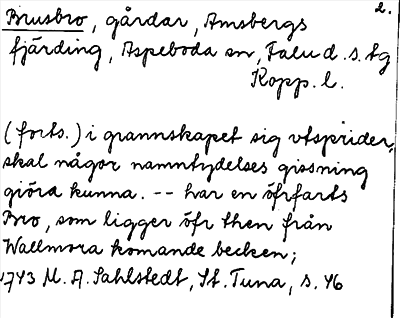 2.
Brusbro, gårdar, Amsbergs
fjärding, Aspeboda sn, Falu d.s. tg
Kopp. l.
(forts.) i grannskapet sig vtsprider,
skal någor namntydelses gissning
giöra kunna. -- har en öfrfarts
Bro, som ligger öfr then från
Wallmora komande becken;
1743 M. A. Sahlstedt, St. Tuna, s. 46